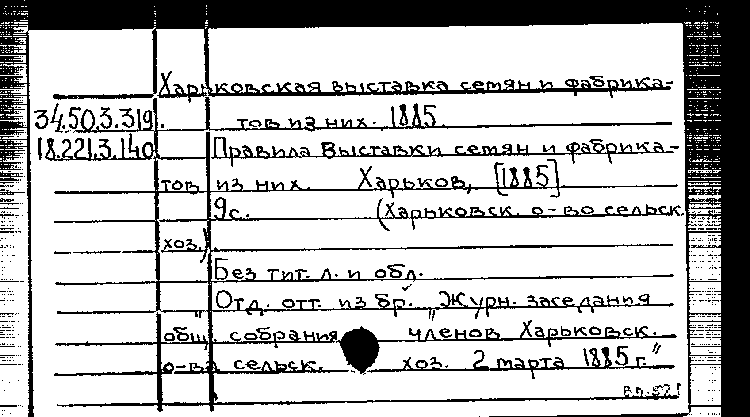 Харьковская выставка семян и фабрика-
34.50.3.319. тов из них. 1885.
18.221.3.140 Правила Выставки семян и фабрика-
тов из них. Харьков, [1885]
9с. (Харьковск. о-во сельск.
хоз.)
Без тит. л. и обл.
Отд. отт. из бр. „Журн. заседания
общ. собрания членов Харьковск.
о-ва сельск. хоз. 2 марта 1885 г."